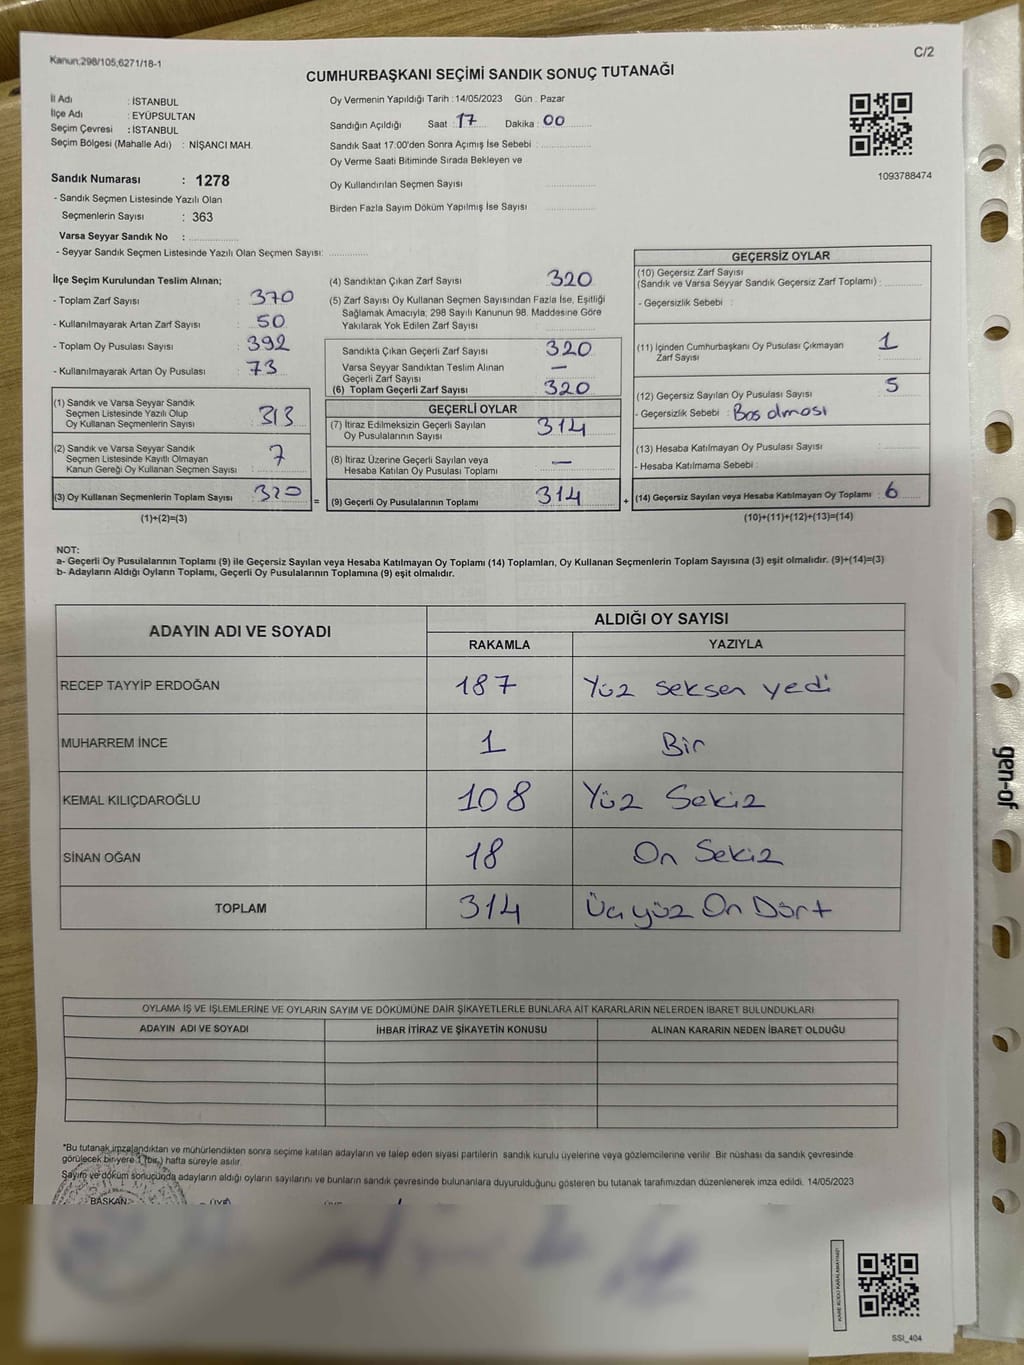 Kanun:298/105,6271/18-1
C/2
CUMHURBAŞKANI SEÇİMİ SANDIK SONUÇ TUTANAĞI
İl Adı : İSTANBUL
İlçe Adı : EYÜPSULTAN
Seçim Çevresi : İSTANBUL
Seçim Bölgesi (Mahalle Adı) : NİŞANCI MAH.
Oy Vermenin Yapıldığı Tarih :14/05/2023 Gün : Pazar
Sandığın Açıldığı Saat : 17 Dakika : 00
Sandık Saat 17:00'den Sonra Açımış İse Sebebi :
Oy Verme Saati Bitiminde Sırada Bekleyen ve
Oy Kullandırılan Seçmen Sayısı
Birden Fazla Sayım Döküm Yapılmış İse Sayısı
1093788474
Sandık Numarası : 1278
- Sandık Seçmen Listesinde Yazılı Olan
Seçmenlerin Sayısı : 363
Varsa Seyyar Sandık No :
- Seyyar Sandık Seçmen Listesinde Yazılı Olan Seçmen Sayısı:
İlçe Seçim Kurulundan Teslim Alınan;
- Toplam Zarf Sayısı : 370
- Kullanılmayarak Artan Zarf Sayısı : 50
- Toplam Oy Pusulası Sayısı : 392
- Kullanılmayarak Artan Oy Pusulası : 73
(1) Sandık ve Varsa Seyyar Sandık
Seçmen Listesinde Yazılı Olup
Oy Kullanan Seçmenlerin Sayısı : 313
(2) Sandık ve Varsa Seyyar Sandık
Seçmen Listesinde Kayıtlı Olmayan
Kanun Gereği Oy Kullanan Seçmen Sayısı : 7
(3) Oy Kullanan Seçmenlerin Toplam Sayısı : 320
(1)+(2)=(3)
=
(4) Sandıktan Çıkan Zarf Sayısı 320
(5) Zarf Sayısı Oy Kullanan Seçmen Sayısından Fazla İse, Eşitliği
Sağlamak Amacıyla; 298 Sayılı Kanunun 98. Maddesine Göre
Yakılarak Yok Edilen Zarf Sayısı
Sandıkta Çıkan Geçerli Zarf Sayısı 320
Varsa Seyyar Sandıktan Teslim Alınan
Geçerli Zarf Sayısı —
(6) Toplam Geçerli Zarf Sayısı 320
GEÇERLİ OYLAR
(7) İtiraz Edilmeksizin Geçerli Sayılan
Oy Pusulalarının Sayısı 314
(8) İtiraz Üzerine Geçerli Sayılan veya
Hesaba Katılan Oy Pusulası Toplamı —
(9) Geçerli Oy Pusulalarının Toplamı 314
+
GEÇERSİZ OYLAR
(10) Geçersiz Zarf Sayısı
(Sandık ve Varsa Seyyar Sandık Geçersiz Zarf Toplamı) :
- Geçersizlik Sebebi :
(11) İçinden Cumhurbaşkanı Oy Pusulası Çıkmayan
Zarf Sayısı : 1
(12) Geçersiz Sayılan Oy Pusulası Sayısı 5
- Geçersizlik Sebebi : Boş olması
(13) Hesaba Katılmayan Oy Pusulası Sayısı
- Hesaba Katılmama Sebebi :
(14) Geçersiz Sayılan veya Hesaba Katılmayan Oy Toplamı : 6
(10)+(11)+(12)+(13)=(14)
NOT:
a- Geçerli Oy Pusulalarının Toplamı (9) ile Geçersiz Sayılan veya Hesaba Katılmayan Oy Toplamı (14) Toplamları, Oy Kullanan Seçmenlerin Toplam Sayısına (3) eşit olmalıdır. (9)+(14)=(3)
b- Adayların Aldığı Oyların Toplamı, Geçerli Oy Pusulalarının Toplamına (9) eşit olmalıdır.
ADAYIN ADI VE SOYADI
ALDIĞI OY SAYISI
RAKAMLA YAZIYLA
RECEP TAYYİP ERDOĞAN 187 Yüz seksen yedi
MUHARREM İNCE 1 Bir
KEMAL KILIÇDAROĞLU 108 Yüz Sekiz
SİNAN OĞAN 18 On Sekiz
TOPLAM 314 Üçyüz On Dört
OYLAMA İŞ VE İŞLEMLERİNE VE OYLARIN SAYIM VE DÖKÜMÜNE DAİR ŞİKAYETLERLE BUNLARA AİT KARARLARIN NELERDEN İBARET BULUNDUKLARI
ADAYIN ADI VE SOYADI İHBAR İTİRAZ VE ŞİKAYETİN KONUSU ALINAN KARARIN NEDEN İBARET OLDUĞU
*Bu tutanak imzalandıktan ve mühürlendikten sonra seçime katılan adayların ve talep eden siyasi partilerin sandık kurulu üyelerine veya gözlemcilerine verilir. Bir nüshası da sandık çevresinde
görülecek bir yere 1 (bir) hafta süreyle asılır.
Sayım ve döküm sonucunda adayların aldığı oyların sayılarını ve bunların sandık çevresinde bulunanlara duyurulduğunu gösteren bu tutanak tarafımızdan düzenlenerek imza edildi. 14/05/2023
BAŞKAN
gen-of
SSI_404